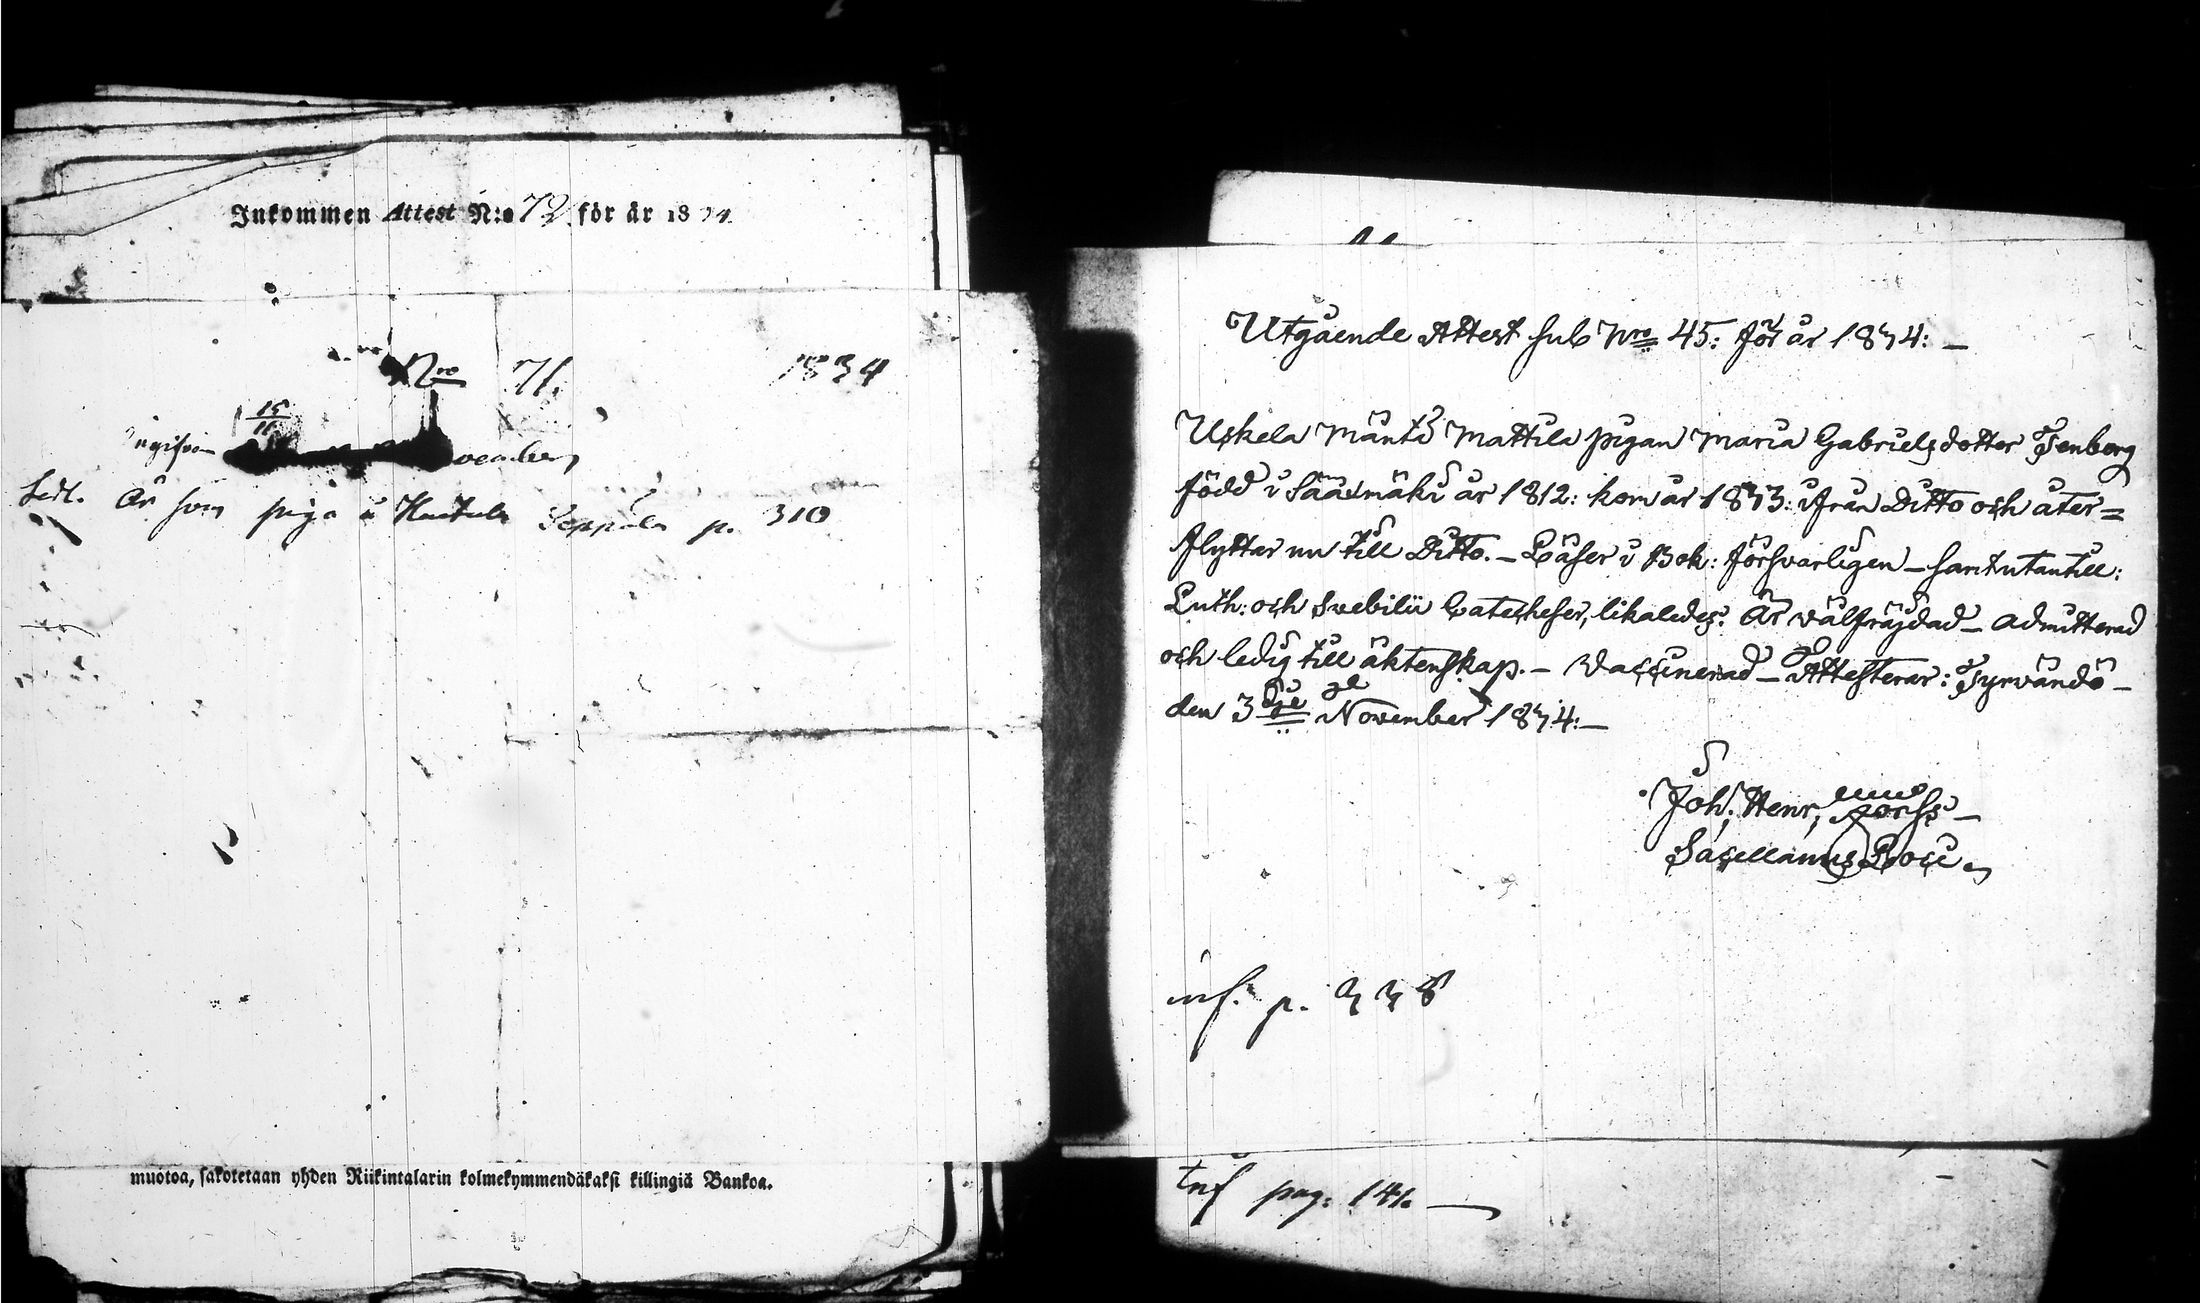 Inkommen Attest N:o 72 för år 1834
Nro 71. 1834
15/11
vember
Sedl. Är som piga i Huitula Seppälä p. 310
muotoa, sakotetaan yhden Riikintalarin kolmekymmendäkaksi killingiä Bankoa.
Utgående Attest sub Nro 45: för år 1834: —
Uskela Mänti Mattila pigan Maria Gabrielsdotter Isenberg
född i Sääxmäki år 1812: kom år 1833: ifrån Ditto och åter=
flyttar nu till Ditto. — Läser i Bok: försvarligen — samt utantill:
Luth: och Svebilii Catecheser, likaledes: Är välfrägdad — admitterad
och ledig till äktenskap. — Vaccinerad — Attesterar: Tyrvändö —
den 3dje November 1834: —
Joh: Henr:
Sacellanus Loci
inf. p. 338
inf pag: 141. —